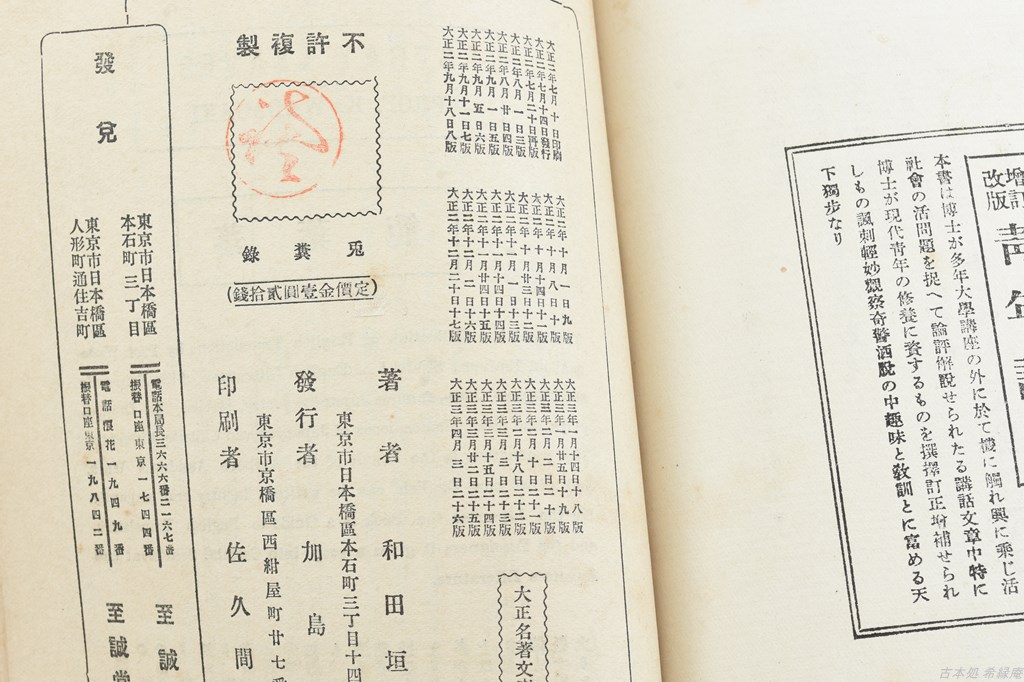 増訂
改版
本書は博士が多年大學講座の外に於て機に觸れ興に乘じ活
社會の活問題を捉へて論評解說せられたる講話文章中特に
博士が現代青年の修養に資するものを撰擇訂正增補せられ
しもの諷刺輕妙觀察奇警洒脫の中趣味と敎訓とに富める天
下獨步なり
大正二年七月十日印刷
大正二年七月十四日發行
大正二年七月二十日再版
大正二年八月一日三版
大正二年八月廿日四版
大正二年九月一日五版
大正二年九月五日六版
大正二年九月十一日七版
大正二年九月十八日八版
大正二年十月一日九版
大正二年十月八日十版
大正二年十月十四日十一版
大正二年十月廿三日十二版
大正二年十一月一日十三版
大正二年十一月十四日十四版
大正二年十一月廿四日十五版
大正二年十二月二日十六版
大正二年十二月二十日十七版
大正三年一月十四日十八版
大正三年一月廿五日十九版
大正三年二月一日二十版
大正三年二月十日二十一版
大正三年二月十八日二十二版
大正三年三月三日二十三版
大正三年三月十五日二十四版
大正三年三月廿二日二十五版
大正三年四月三日二十六版
大正名著文
不許複製
兎糞錄
(定價金壹圓貳拾錢)
著者 和田垣
東京市日本橋區本石町三丁目十四
發行者 加島
東京市京橋區西紺屋町廿七番
印刷者 佐久間
發兌
東京市日本橋區
本石町三丁目
電話本局長三六六番二一六七番
振替口座東京一七四四番
至誠
東京市日本橋區
人形町通住吉町
電話浪花一九四九番
振替口座東京一九八四二番
至誠堂
古本処 希縁庵